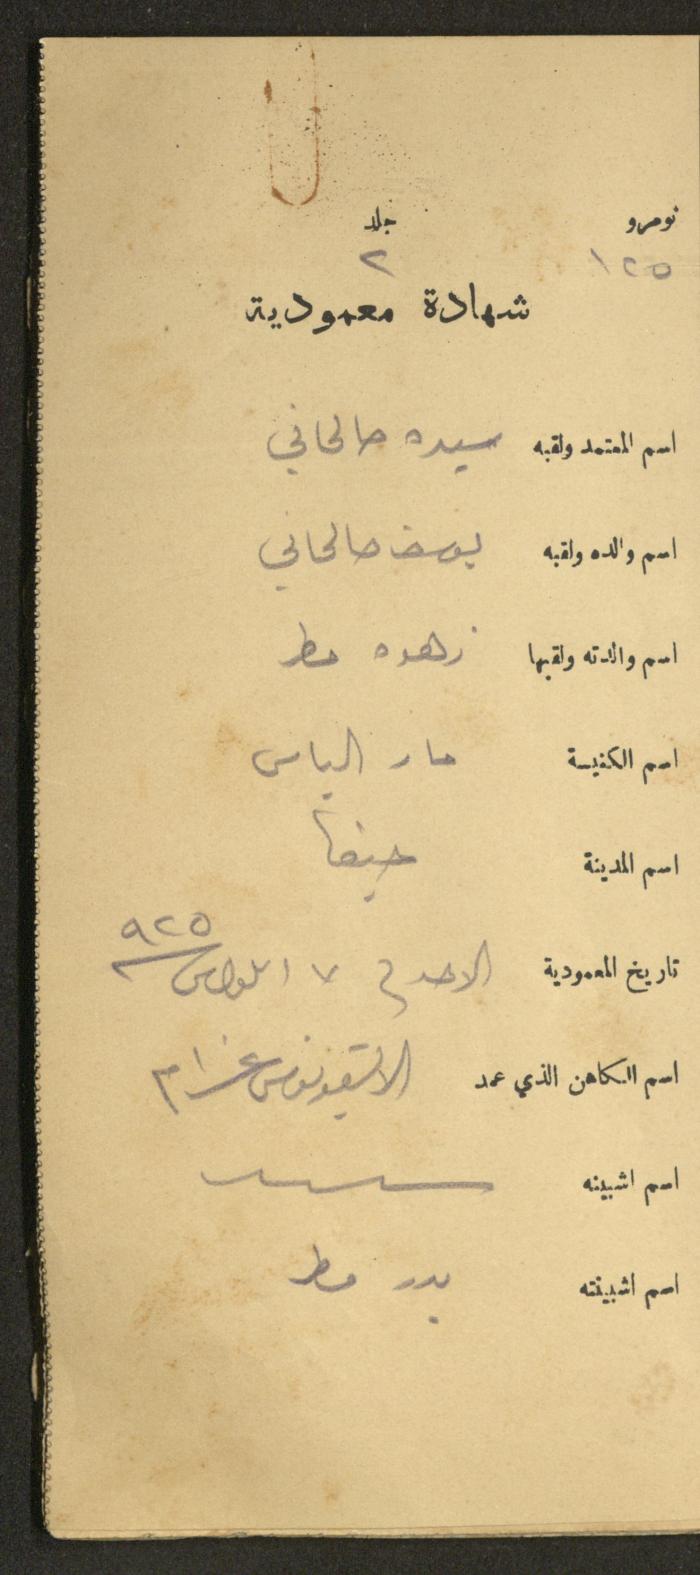 نومرو جلد
١٢٥ ٢
شهادة معمودية
اسم المعتمد ولقبه سيده صالحاني
اسم والده ولقبه يوسف صالحاني
اسم والدته ولقبها زهوه مطر
اسم الكنيسة مار الياس
اسم المدينة حيفا
تاريخ المعمودية الاحد في ٧ ٩٢٥
اسم الكاهن الذي عمد
اسم اشبينه
اسم اشبينته بدر مطر